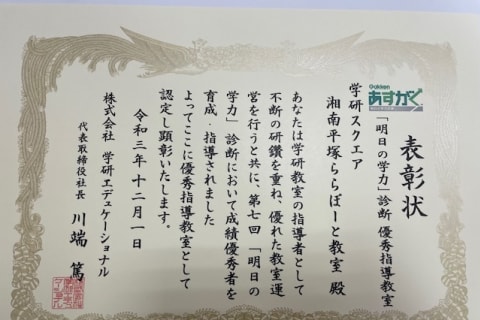 表彰状
Gakken
あすがく
「明日の学力」診断 優秀指導教室
学研スクエア
湘南平塚ららぽーと教室 殿
あなたは学研教室の指導者として
不断の研鑽を重ね、優れた教室運
営を行うと共に、第七回「明日の
学力」診断において成績優秀者を
育成・指導されました
よってここに優秀指導教室として
認定し顕彰いたします。
令和三年十二月一日
株式会社 学研エデュケーショナル
代表取締役社長 川端 篤